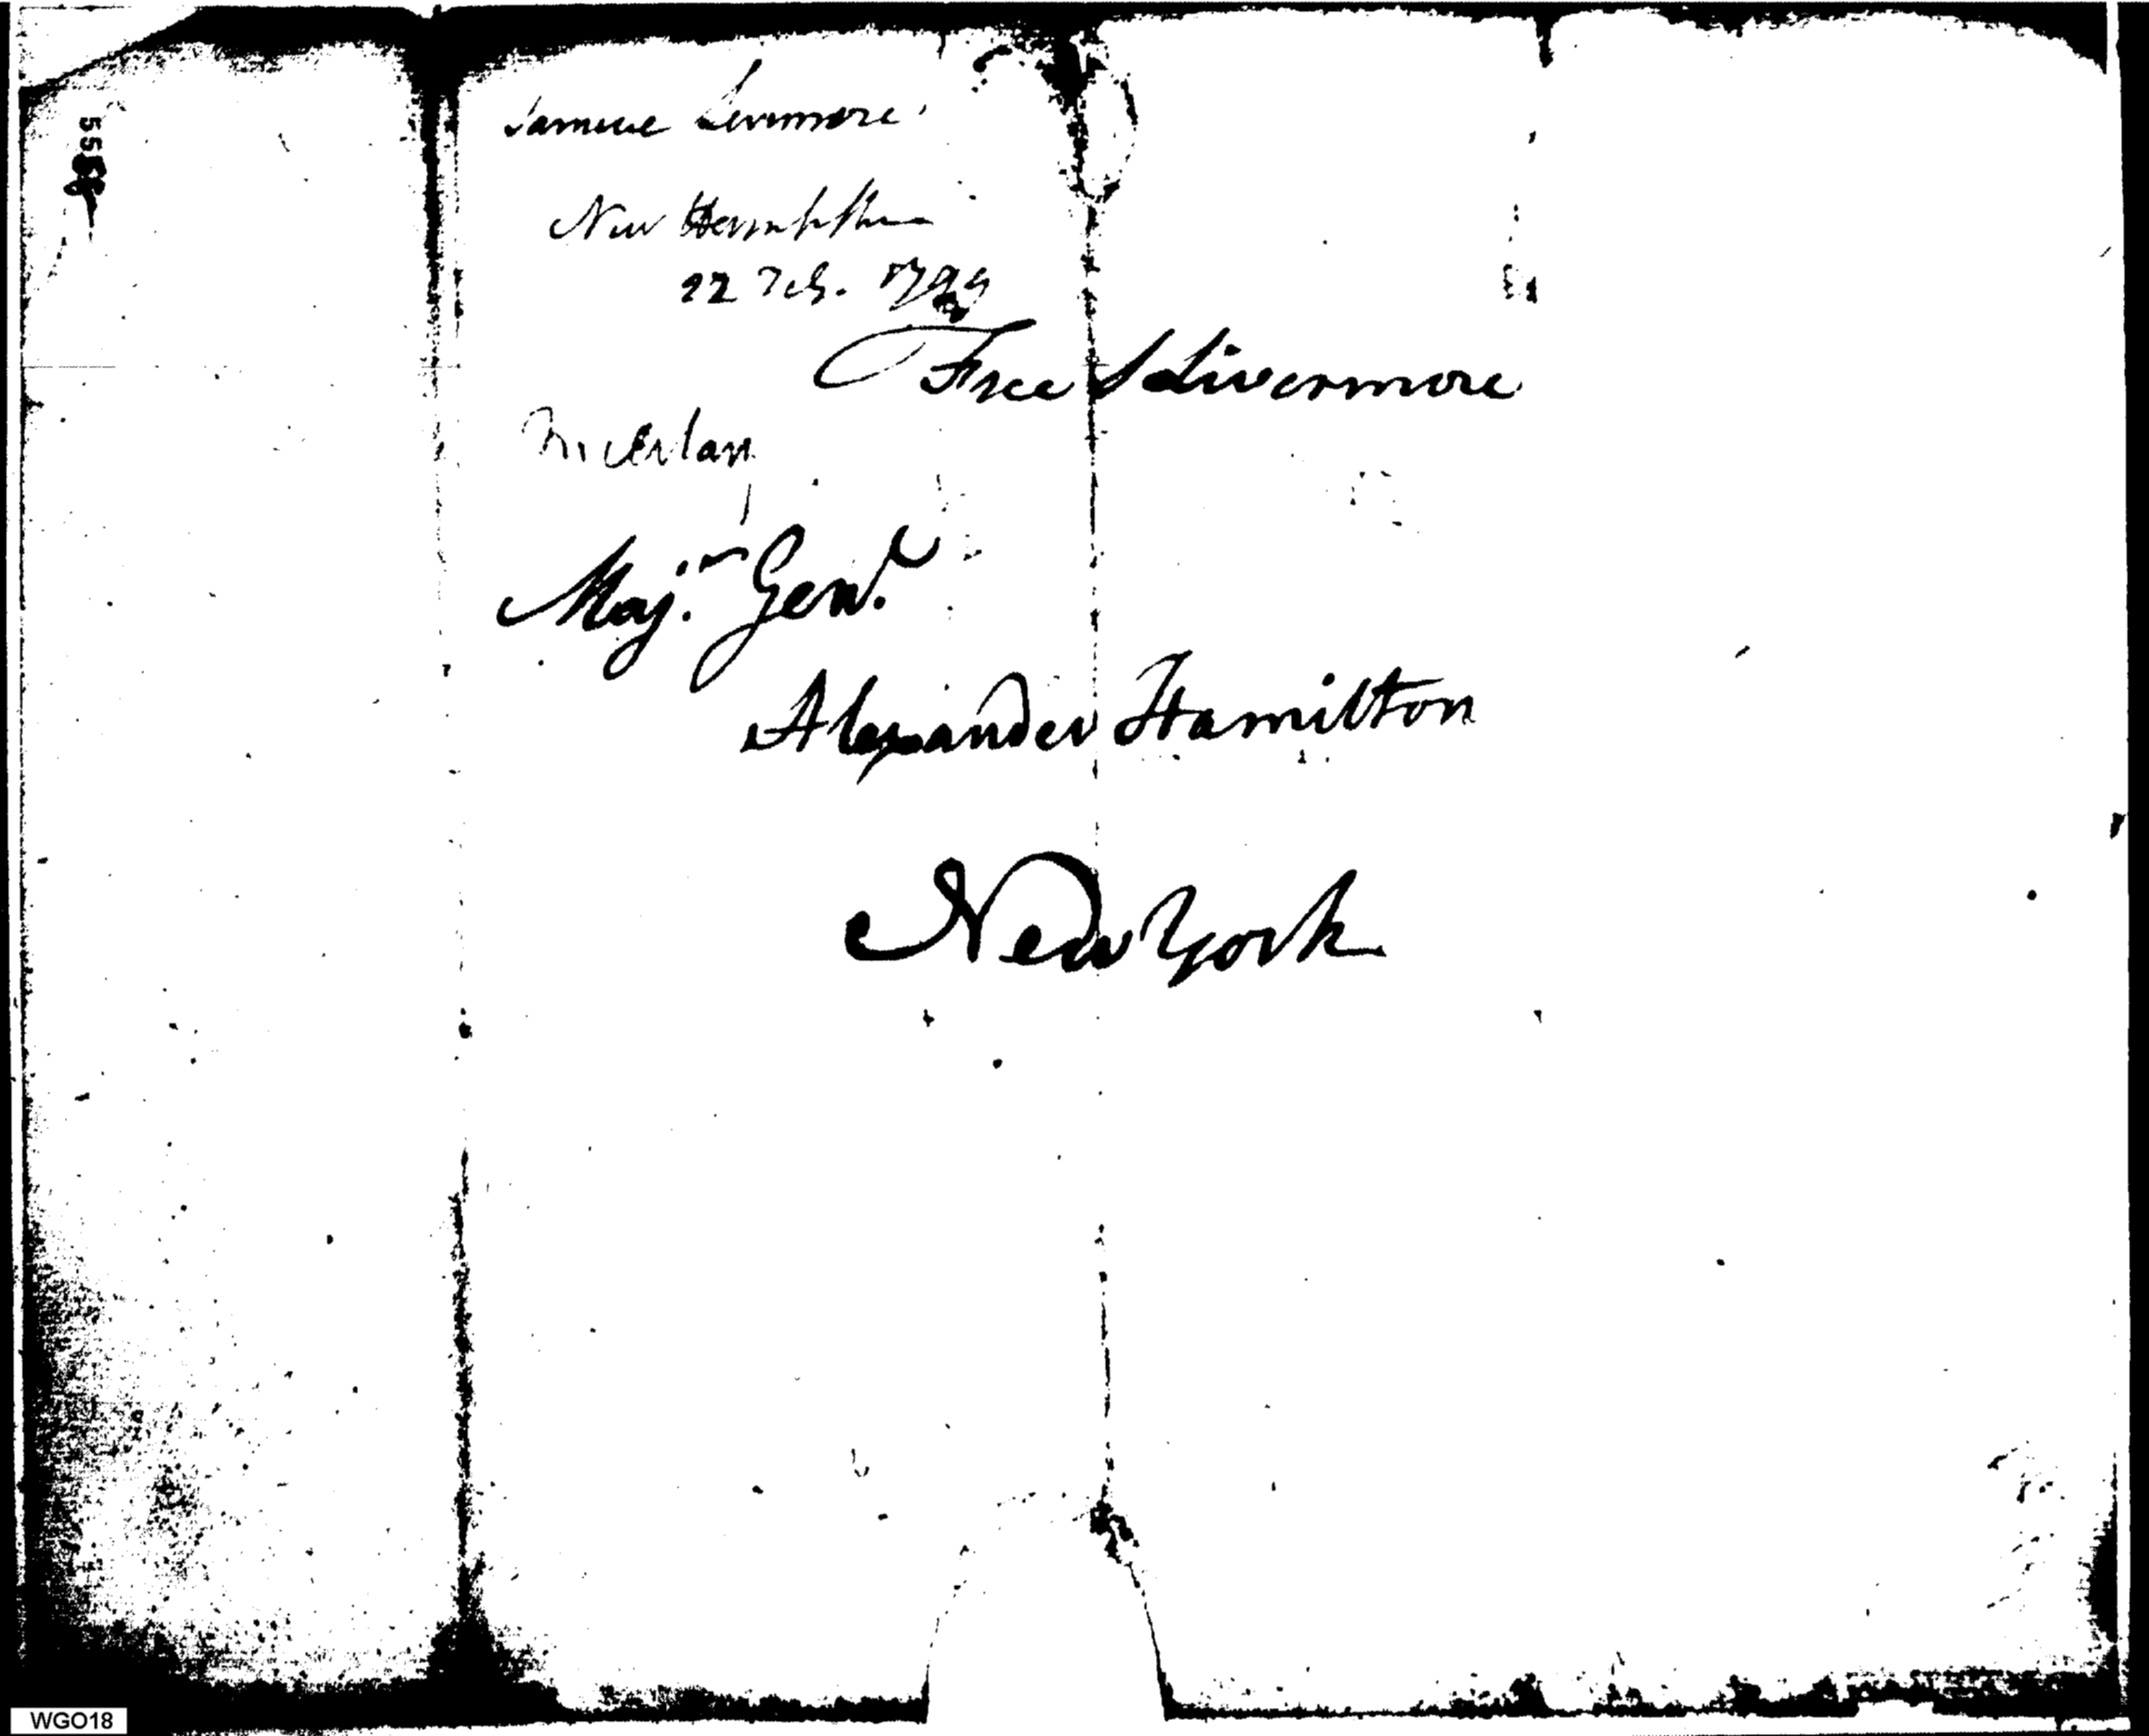 Samuel Livermore
New Hampshire
22 Feb. 1799
Free S Livermore
Majr. Genl.
Alexander Hamilton
New York
WGO18